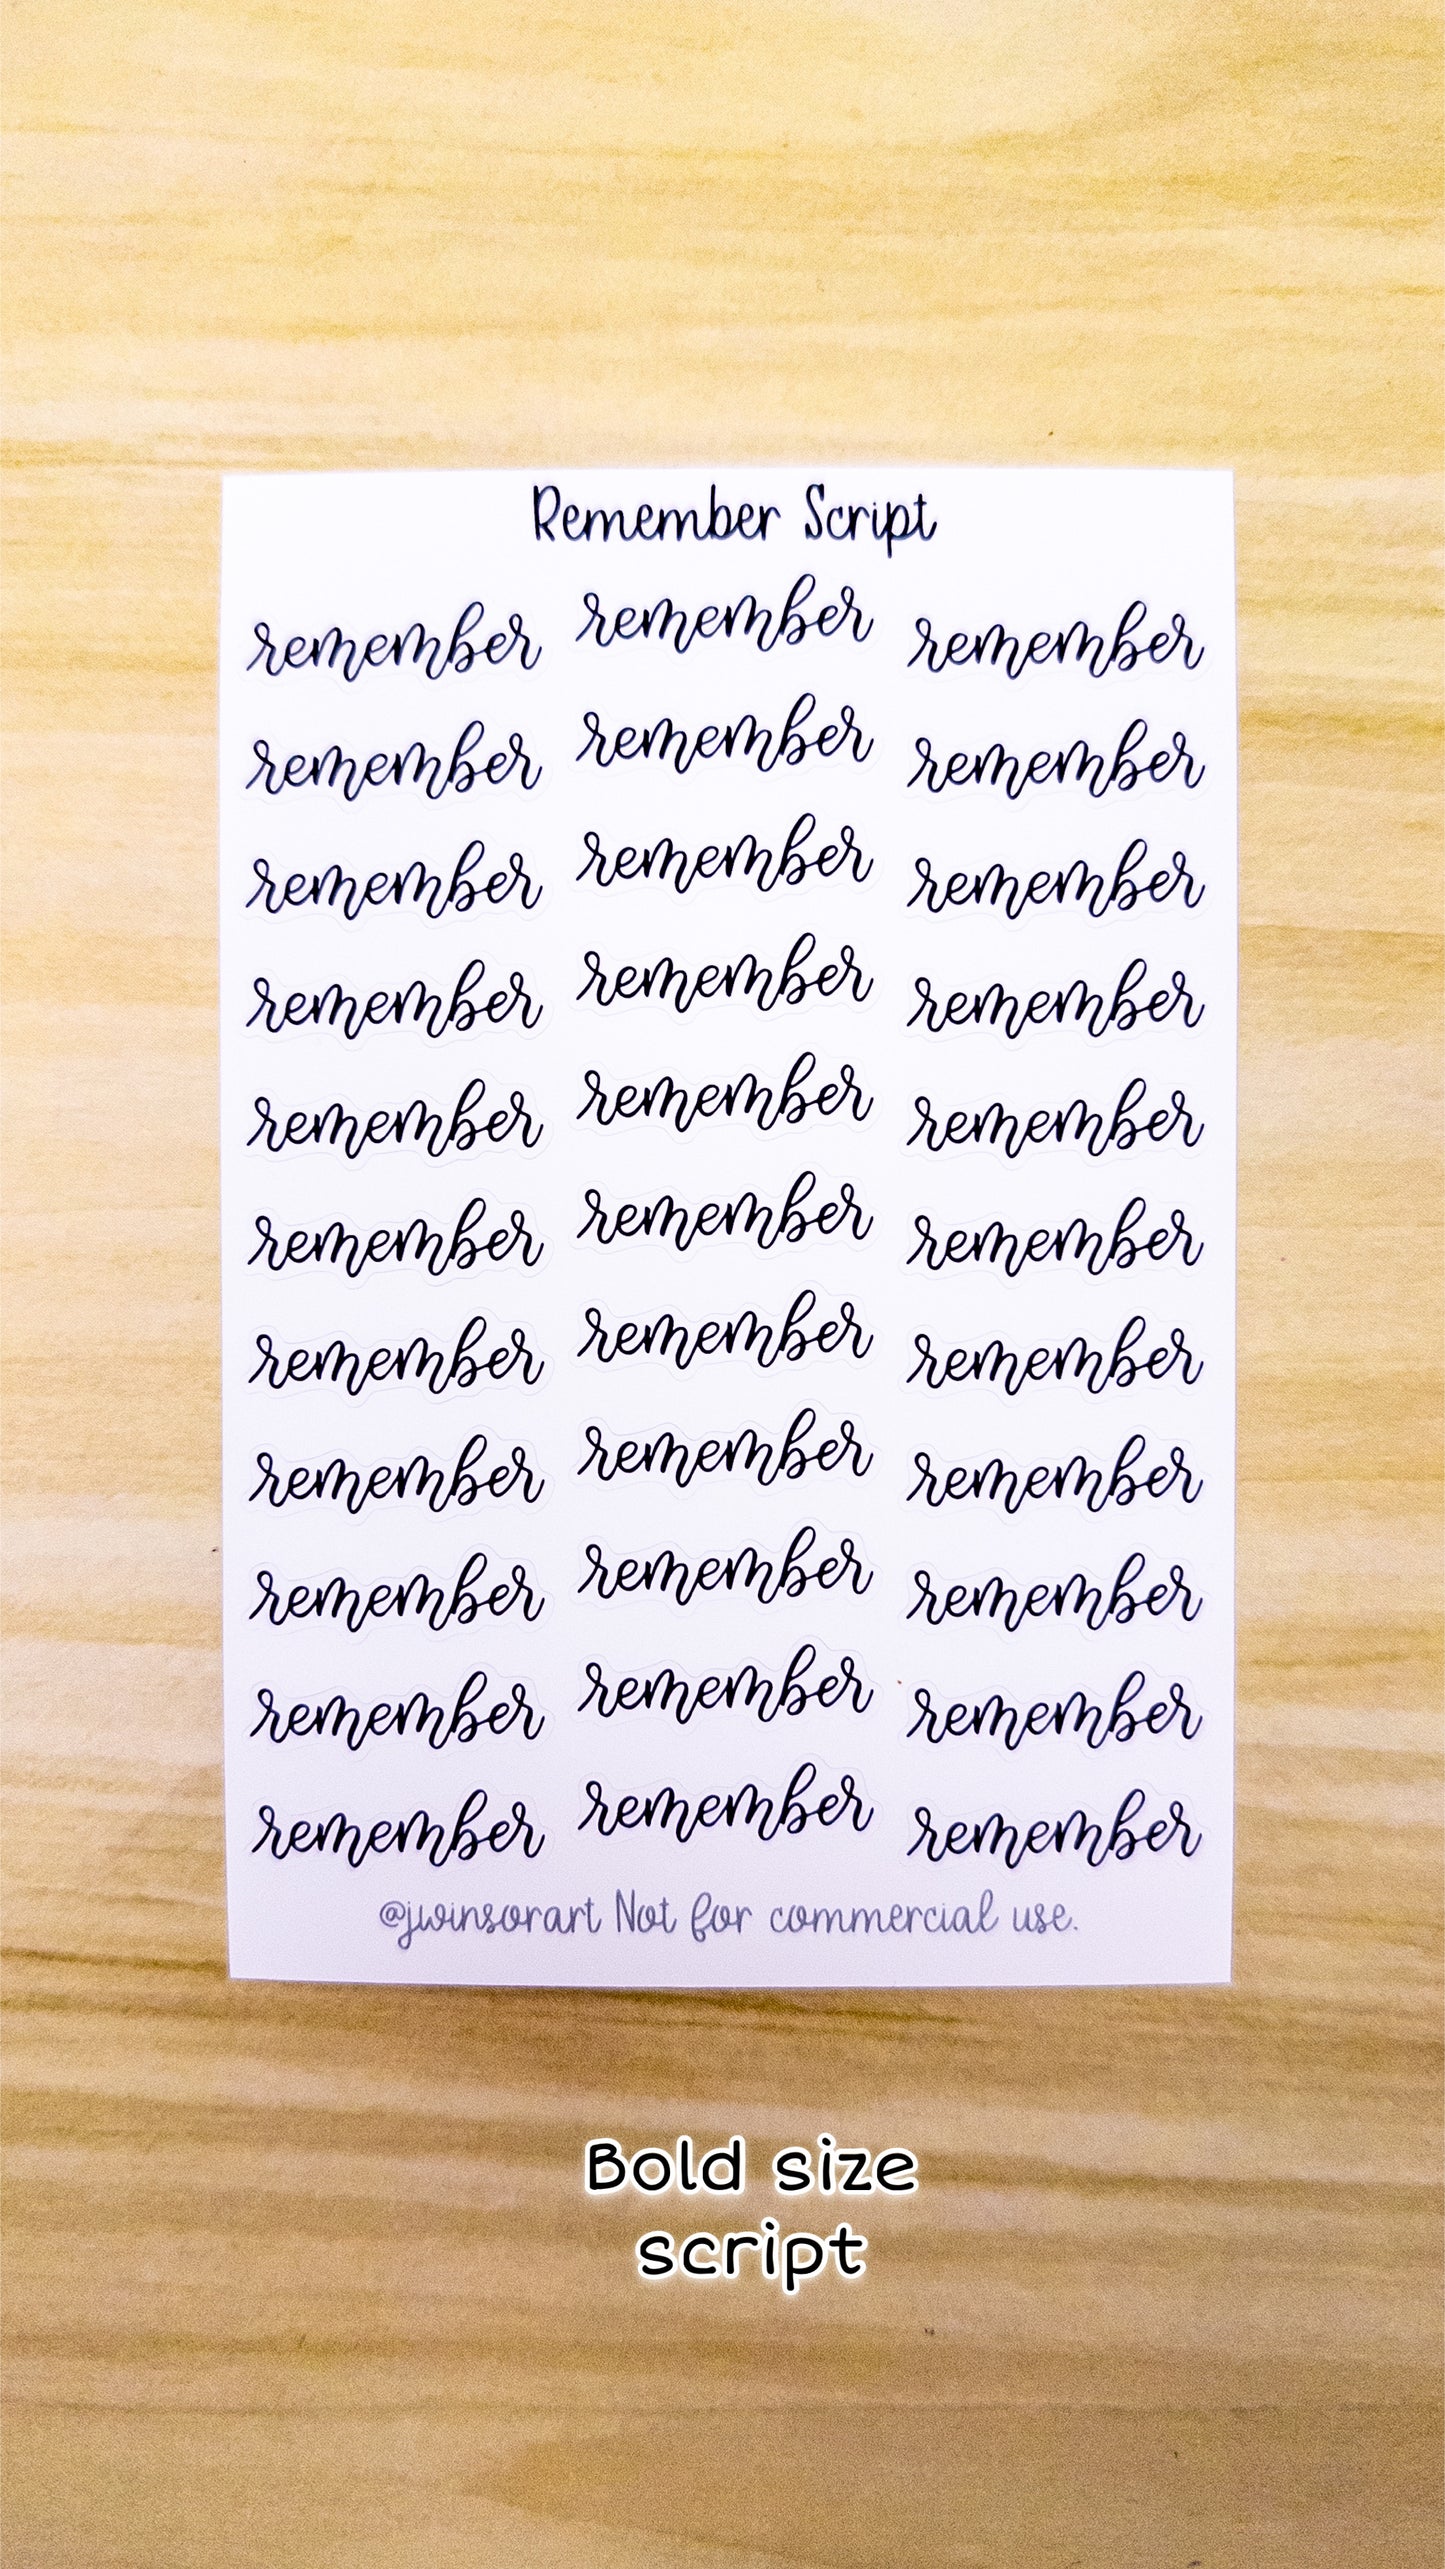 Remember Script
remember remember remember
remember remember remember
remember remember remember
remember remember remember
remember remember remember
remember remember remember
remember remember remember
remember remember remember
remember remember remember
remember remember remember
remember remember remember
@jwinsorart Not for commercial use.
Bold size
script